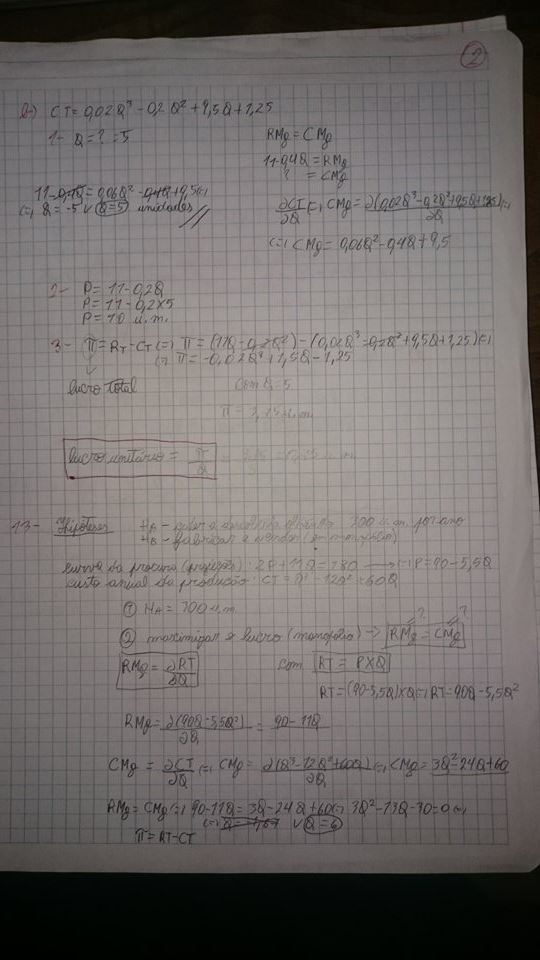 2
b-) CT = 0,02Q³ - 0,2Q² + 9,5Q + 1,25
1- Q = ? = 5
RMg = CMg
11 - 0,4Q = RMg
? = CMg
11 - 0,4Q = 0,06Q² - 0,4Q + 9,5 (=)
(=) Q = -5 ∨ Q = 5 unidades
∂CT/∂Q (=) CMg = ∂(0,02Q³ - 0,2Q² + 9,5Q + 1,25)/∂Q (=)
(=) CMg = 0,06Q² - 0,4Q + 9,5
2- P = 11 - 0,2Q
P = 11 - 0,2×5
P = 10 u.m.
3- π = RT - CT (=) π = (11Q - 0,2Q²) - (0,02Q³ - 0,2Q² + 9,5Q + 1,25) (=)
(=) π = -0,02Q³ + 1,5Q - 1,25
lucro total
Com Q = 5
π = 3,75 u.m.
lucro unitário = π/Q = 3,75/5 = 0,75 u.m.
13- Hipóteses
HA - 100 u.m. por ano
HB - fabricar e vender (monopólio)
curva da procura: 2P + 11Q = 180 → P = 90 - 5,5Q
custo anual da produção: CT = Q³ - 12Q² + 60Q
① HA = 100 u.m.
② maximizar o lucro (monopólio) → RMg = CMg
? ?
RMg = ∂RT/∂Q com RT = P×Q
RT = (90 - 5,5Q)×Q (=) RT = 90Q - 5,5Q²
RMg = ∂(90Q - 5,5Q²)/∂Q = 90 - 11Q
CMg = ∂CT/∂Q (=) CMg = ∂(Q³ - 12Q² + 60Q)/∂Q (=) CMg = 3Q² - 24Q + 60
RMg = CMg (=) 90 - 11Q = 3Q - 24Q + 60 (=) 3Q² - 13Q - 30 = 0 (=)
(=) Q = -1,67 ∨ Q = 6
π = RT - CT